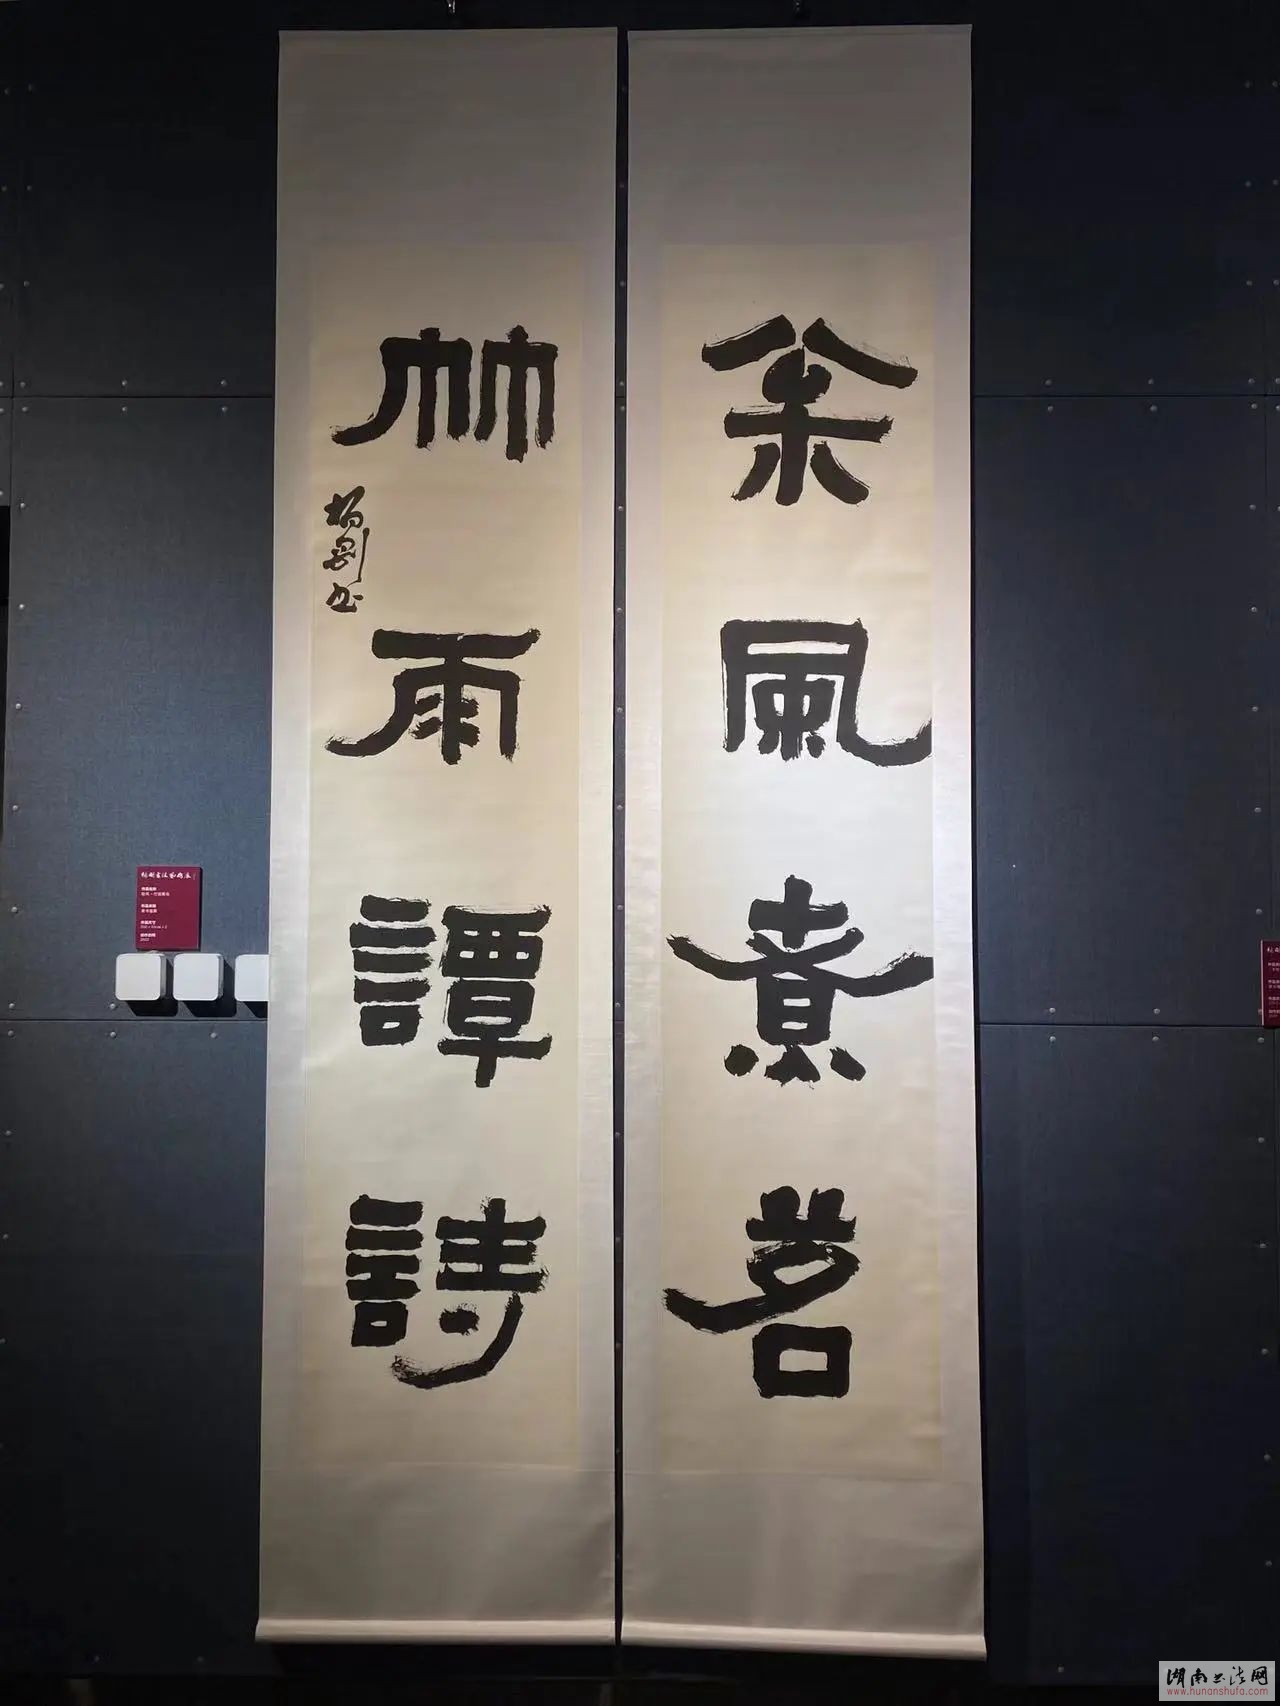 枀風煮茗
竹雨譚詩
湖南书法网
www.hunanshufa.com